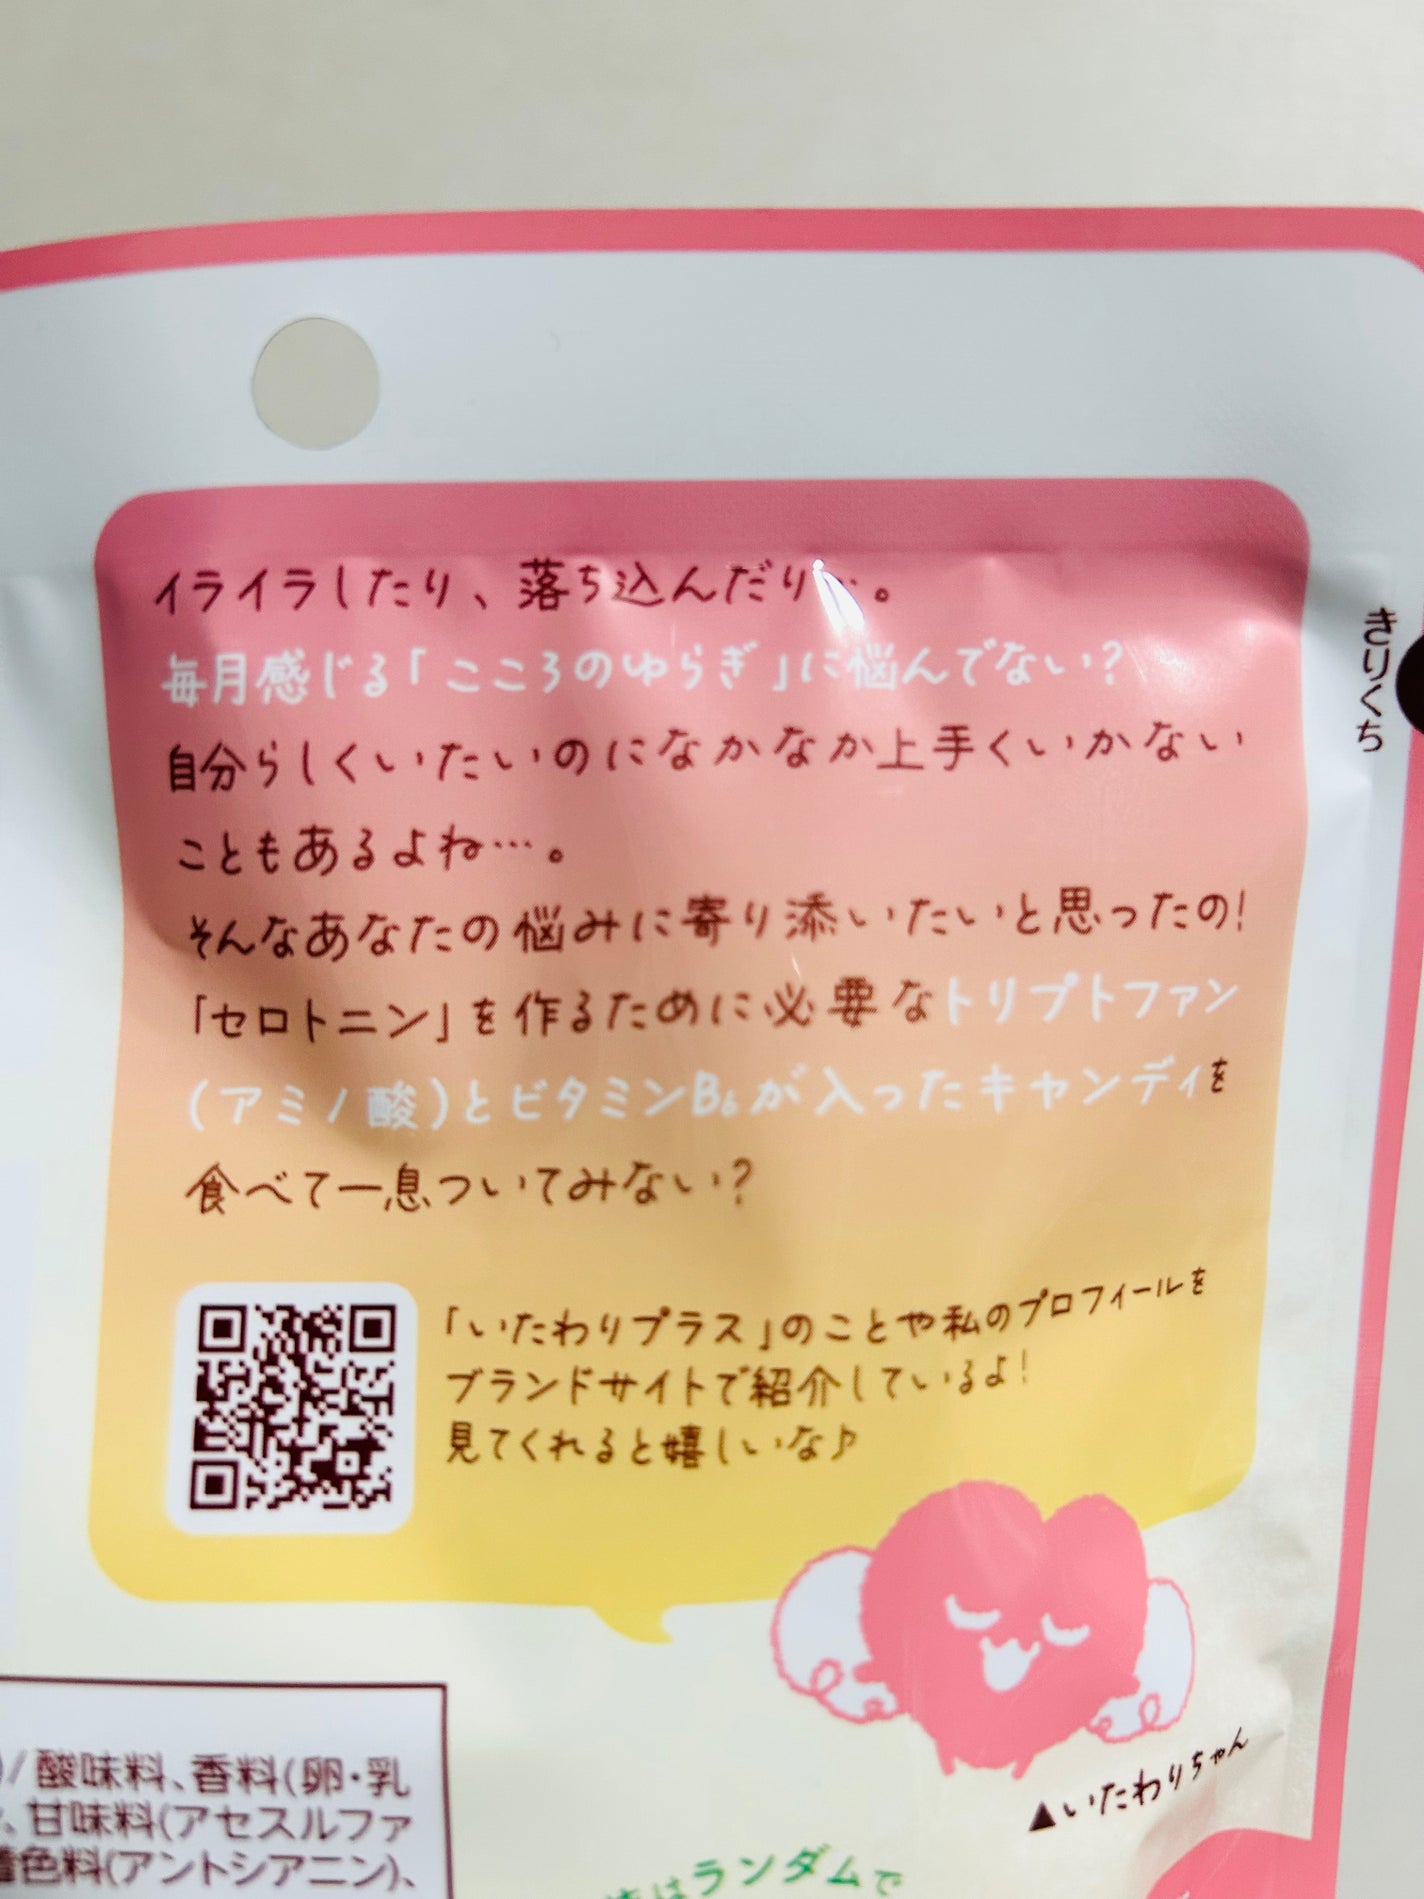 イライラしたり、落ち込んだり…。
毎月感じる「こころのゆらぎ」に悩んでない?
自分らしくいたいのになかなか上手くいかない
こともあるよね…。
そんなあなたの悩みに寄り添いたいと思ったの!
「セロトニン」を作るために必要なトリプトファン
(アミノ酸)とビタミンB₆が入ったキャンディを
食べて一息ついてみない?
「いたわりプラス」のことや私のプロフィールを
ブランドサイトで紹介しているよ!
見てくれると嬉しいな♪
きりくち
▲いたわりちゃん
)/酸味料、香料(卵・乳
、甘味料(アセスルファ
着色料(アントシアニン)、
はランダムで